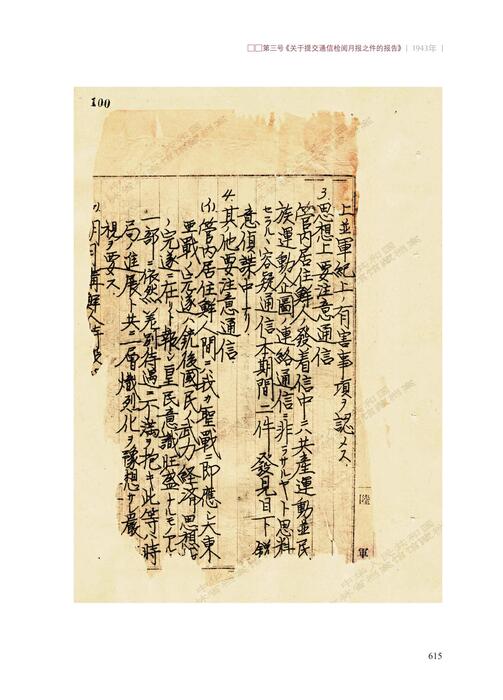 □□第三号《关于提交通信检阅月报之件的报告》 | 1943年 |
100
上並軍紀上ノ有害事項ヲ認メス
3 思想上要注意通信
管内居住鮮人發着信中ニハ共産運動並民
族運動企圖ノ連絡通信ニ非ラサルヤト思料
セラルヽ容疑通信本期間二件發見目下
意偵諜中ナリ
4. 其他要注意通信
(1) 管内居住鮮人間ニハ我カ聖戰ニ即應シ大東
亜戰ノ完遂ハ銃後國民ノ武力経済思想
ノ完遂ニ在リト報シ皇民意識旺盛ナルモノアルモ
一部ニハ依然差別待遇ニ不満ヲ抱キ此等ハ時
局ノ進展ト共ニ一層熾烈化ヲ豫想サレ嚴
視ヲ要ス
陸
軍
615